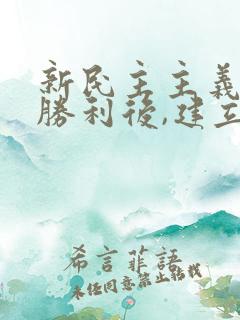 新民主主義
勝利後,建立
希言菲語
未经同意禁止转载